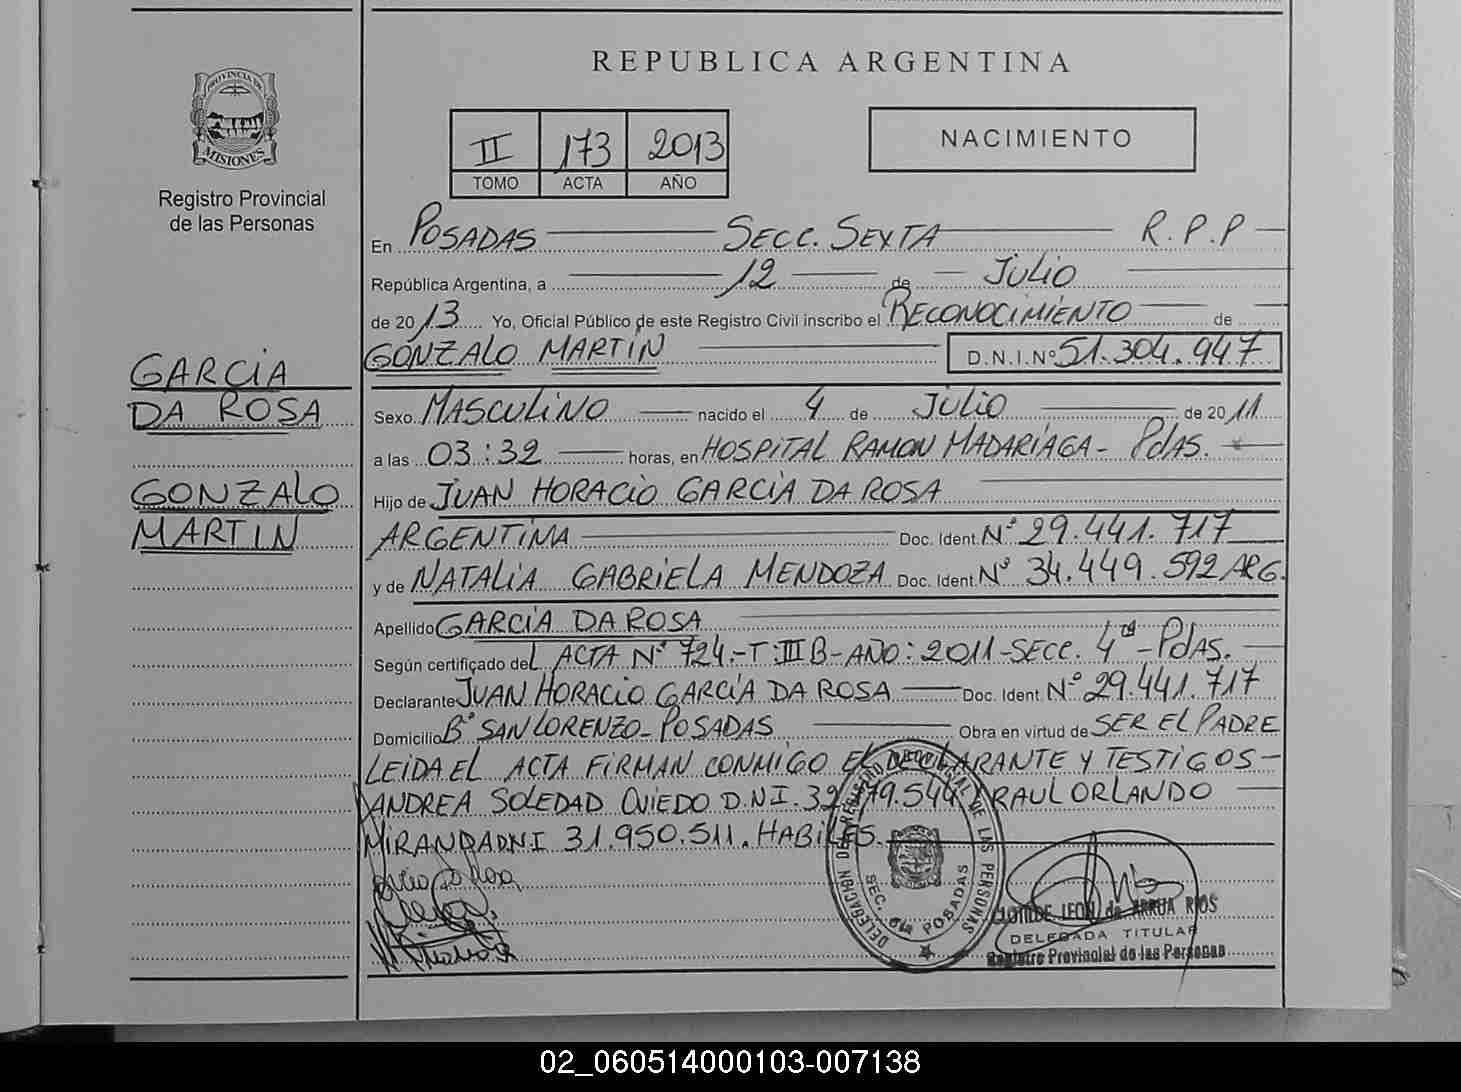 REPUBLICA ARGENTINA
PROVINCIA DE
MISIONES
Registro Provincial
de las Personas
II 173 2013
TOMO ACTA AÑO
NACIMIENTO
En POSADAS SECC. SEXTA R.P.P
República Argentina, a 12 de JULIO
de 2013 Yo, Oficial Público de este Registro Civil inscribo el RECONOCIMIENTO de
GONZALO MARTIN D.N.I.Nº 51.304.947
GARCIA
DA ROSA
GONZALO
MARTIN
Sexo MASCULINO nacido el 4 de JULIO de 2011
a las 03:32 horas, en HOSPITAL RAMON MADARIAGA - Pdas.
Hijo de JUAN HORACIO GARCIA DA ROSA
ARGENTINA Doc. Ident. Nº 29.441.717
y de NATALIA GABRIELA MENDOZA Doc. Ident. Nº 34.449.592 ARG.
Apellido GARCIA DA ROSA
Según certificado del ACTA Nº 724.-T:III B-AÑO:2011-SECC. 4ta-Pdas.
Declarante JUAN HORACIO GARCIA DA ROSA Doc. Ident. Nº 29.441.717
Domicilio Bº SAN LORENZO-POSADAS Obra en virtud de SER EL PADRE
LEIDA EL ACTA FIRMAN CONMIGO EL DECLARANTE Y TESTIGOS-
ANDREA SOLEDAD OVIEDO D.N.I. Y RAUL ORLANDO
MIRANDA DNI 31.950.511. HABILES.
DELEGACION DEL REGISTRO PROVINCIAL DE LAS PERSONAS
SEC. 6ta POSADAS
CLOTILDE LEON de ARRUA RIOS
DELEGADA TITULAR
Registro Provincial de las Personas
02_060514000103-007138